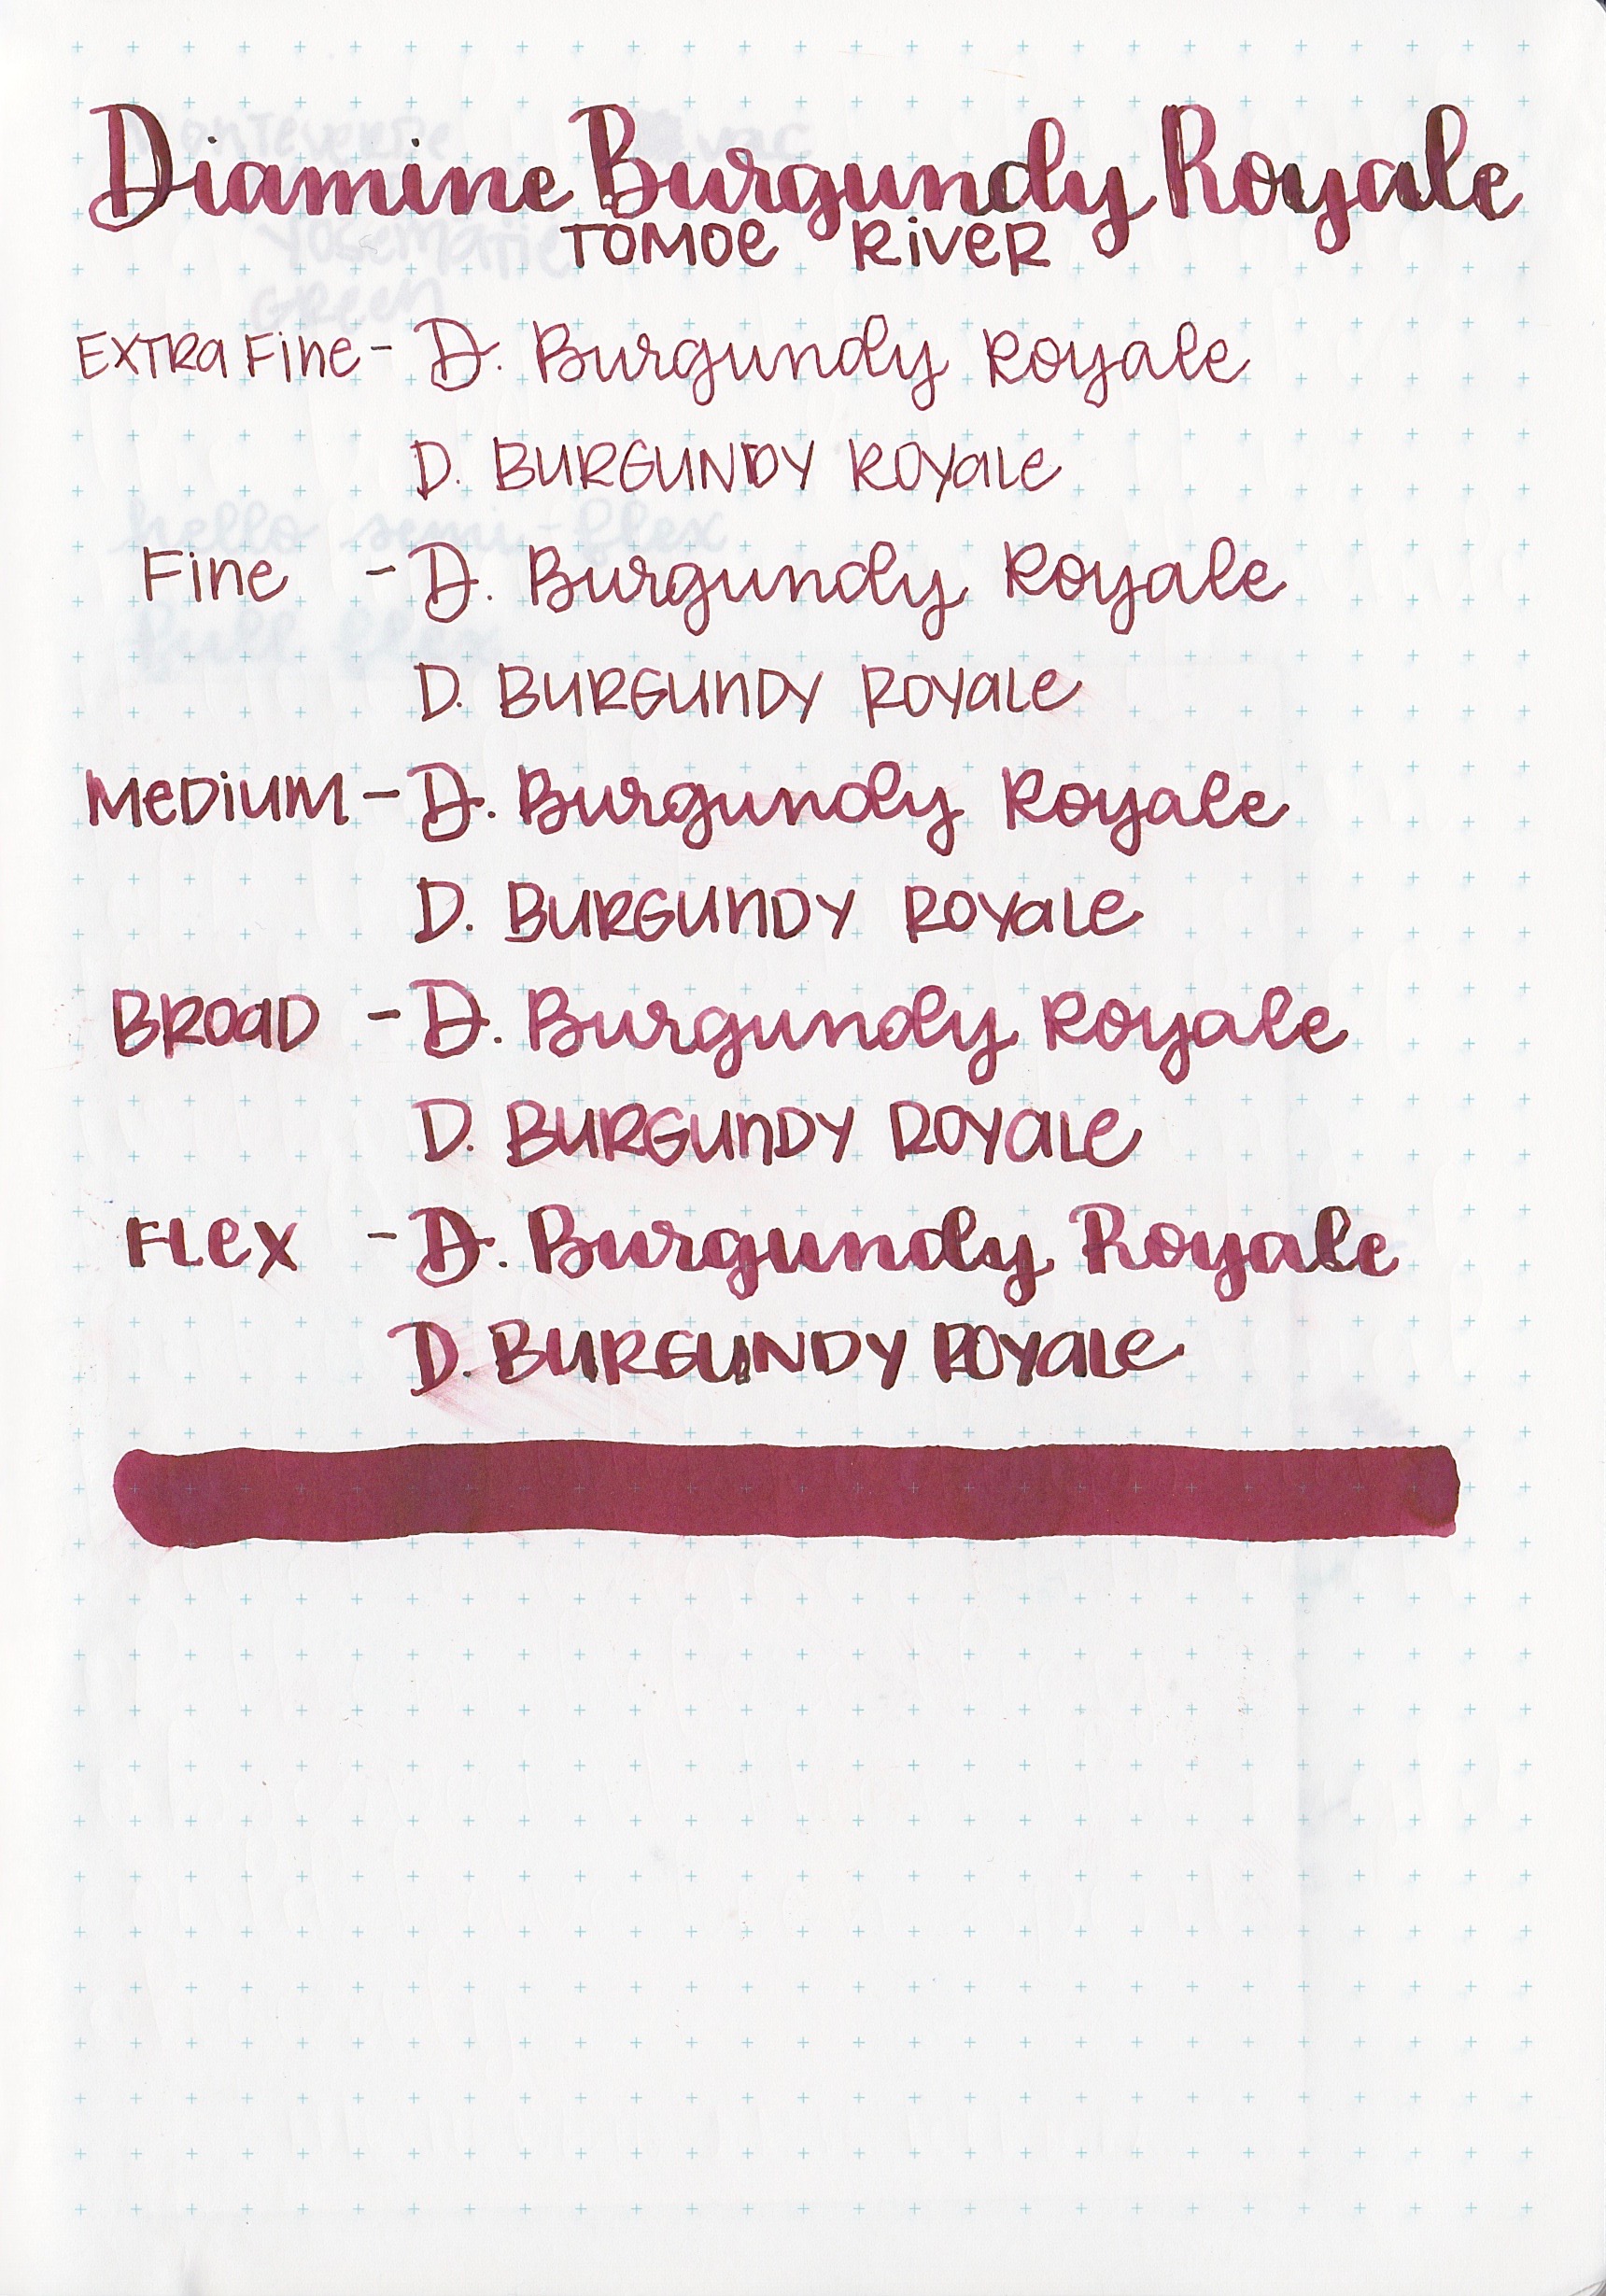 Diamine Burgundy Royale
TOMOE RIVER
EXTRA FINE - D. Burgundy Royale
D. BURGUNDY ROYALE
FINE - D. Burgundy Royale
D. BURGUNDY ROYALE
MEDIUM - D. Burgundy Royale
D. BURGUNDY ROYALE
BROAD - D. Burgundy Royale
D. BURGUNDY ROYALE
FLEX - D. Burgundy Royale
D. BURGUNDY ROYALE
Monteverde
Yosemaite
Green
hello semi-flex
full flex